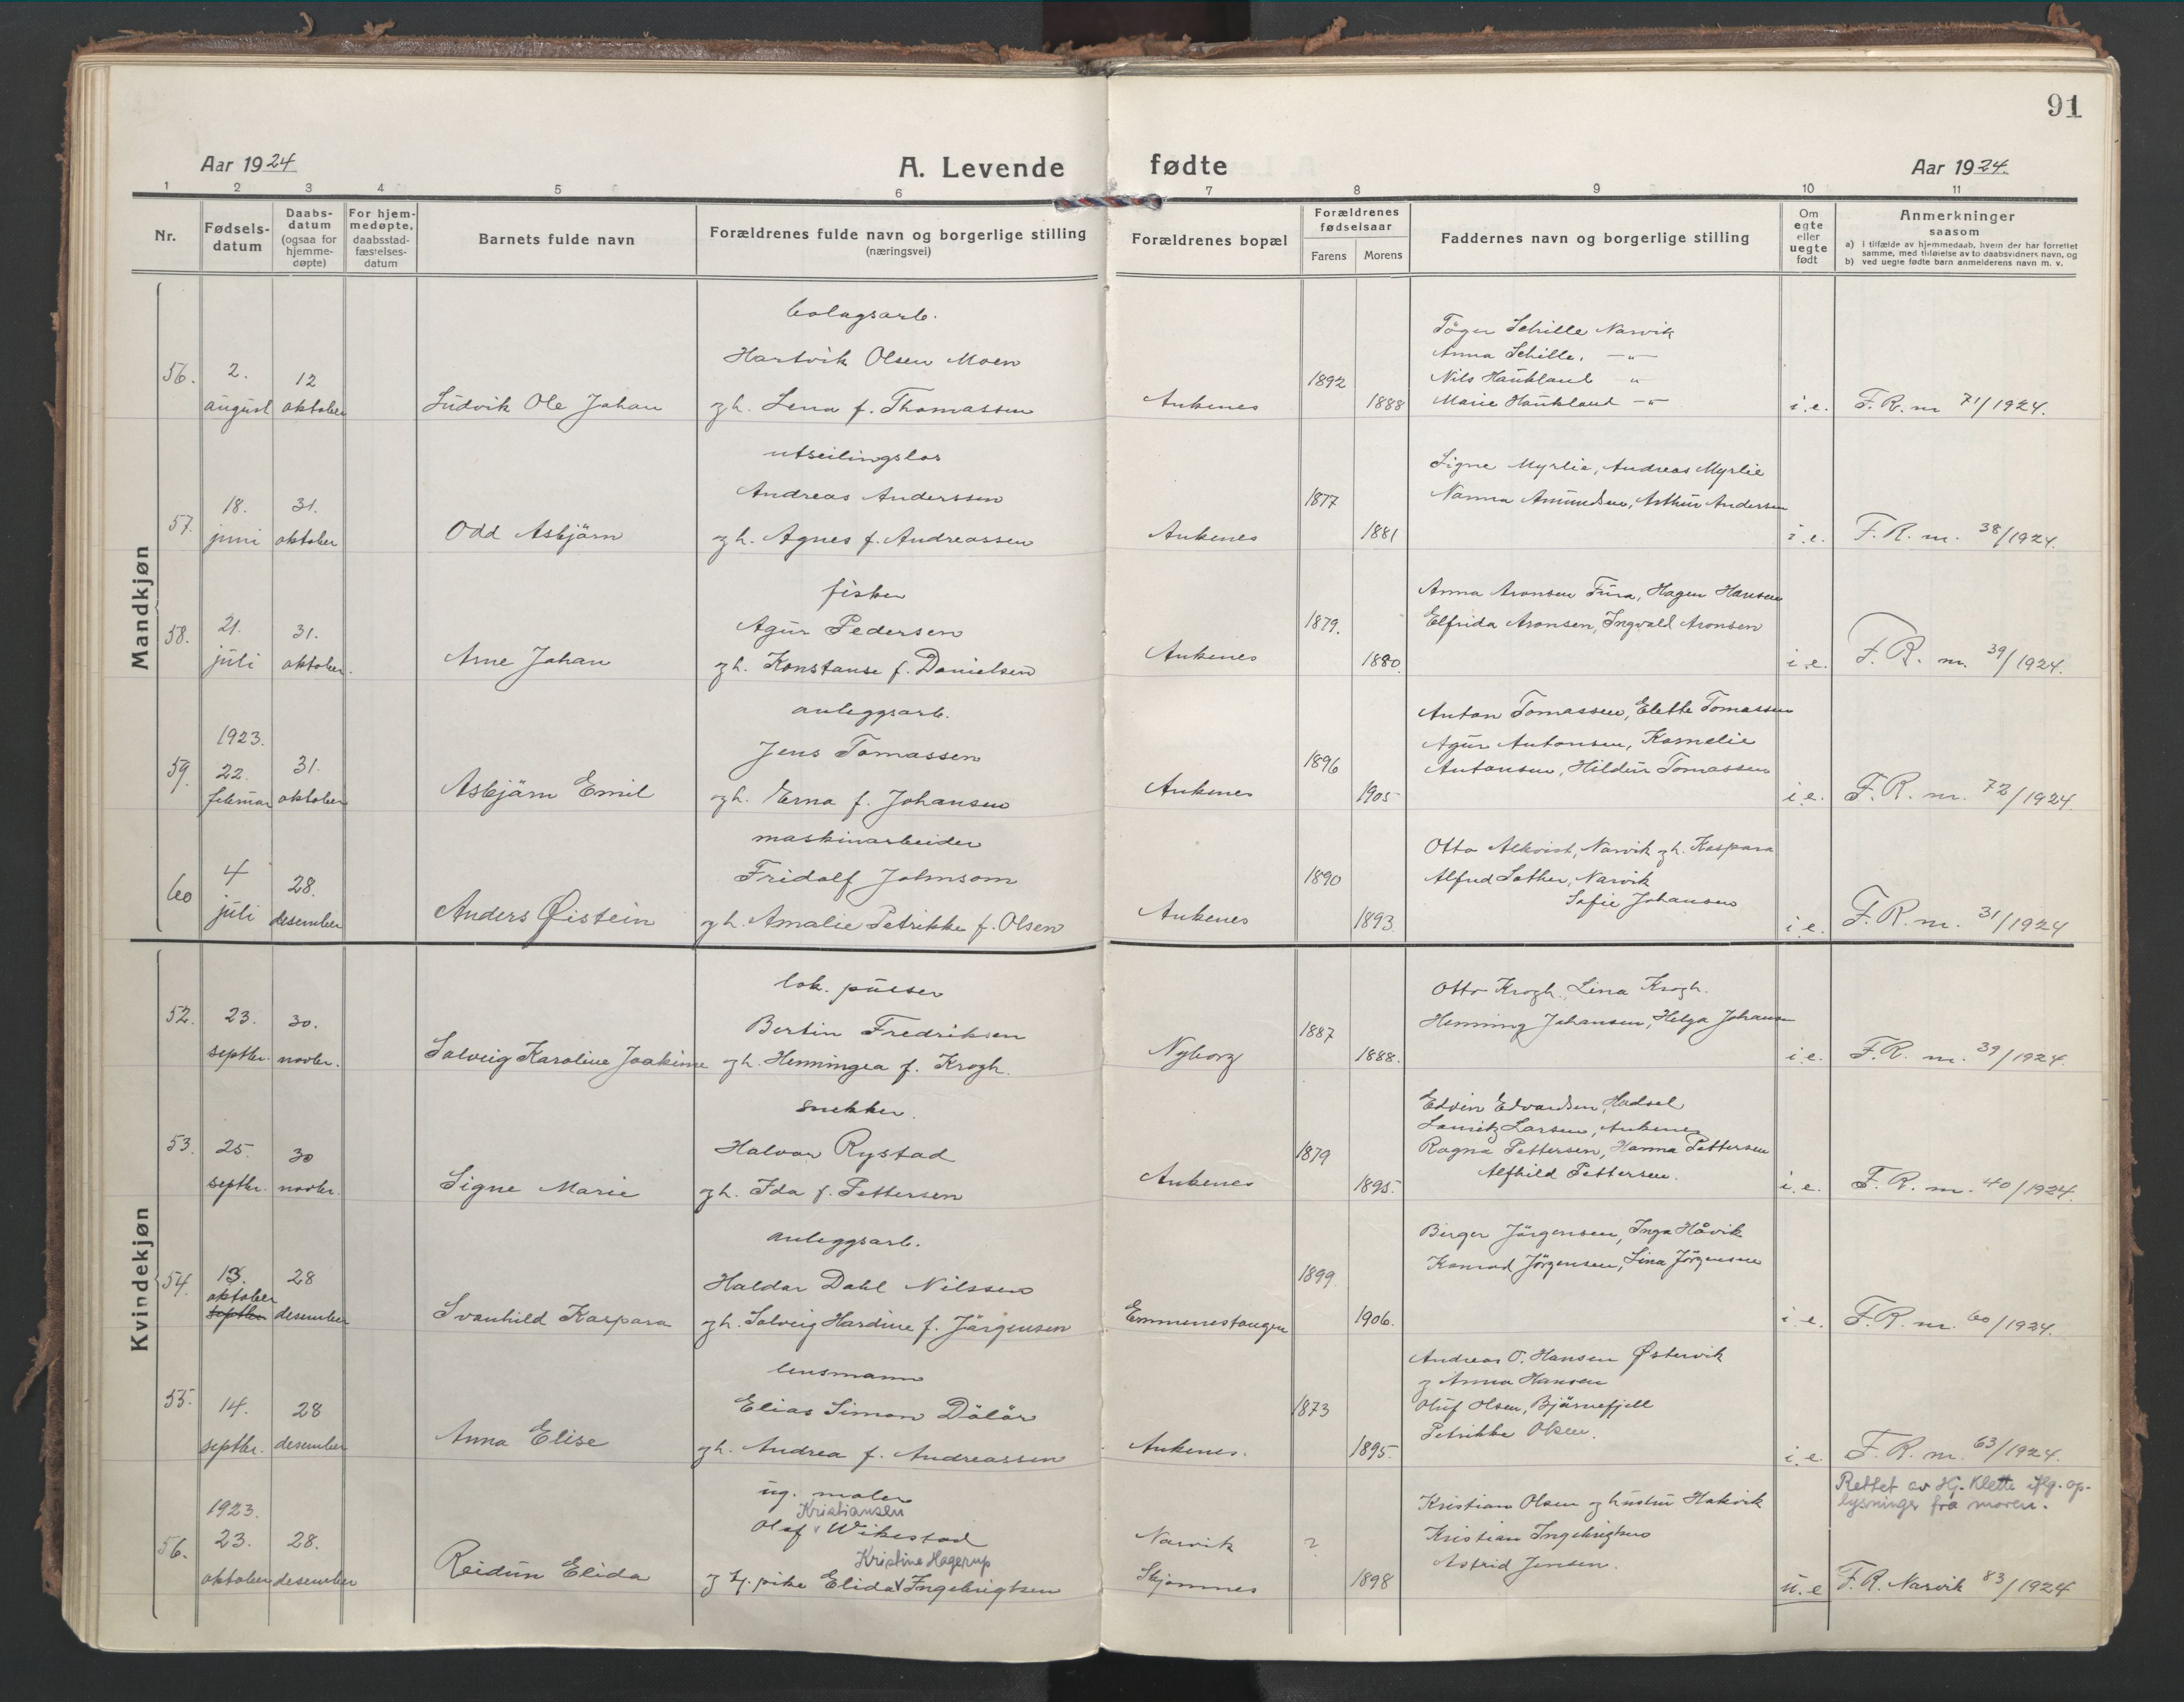 91
Aar 1924
A. Levende fødte
Aar 1924.
1 2 3 4 5 6 7 8 9 10 11
Nr.
Fødsels-
datum
Daabs-
datum
(ogsaa for
hjemme-
døpte)
For hjem-
medøpte,
daabsstad-
fæstelses-
datum
Barnets fulde navn
Forældrenes fulde navn og borgerlige stilling
(næringsvei)
Forældrenes bopæl
Forældrenes
fødselsaar
Farens Morens
Faddernes navn og borgerlige stilling
Om
egte
eller
uegte
født
Anmerkninger
saasom
a) i tilfælde av hjemmedaab, hvem der har forrettet
samme, med tilføielse av to daabsvidners navn, og
b) ved uegte fødte barn anmelderens navn m. v.
Mandkjøn
56.
2.
august
12
oktober
Ludvik Ole Johan
bolagsarb.
Hartvik Olsen Moen
og h. Lena f. Thomassen
Ankenes
1892
1888
Schille Narvik
Anna Schille, —"—
Nils Haukland "
Marie Haukland —"—
i.e.
F.R. nr 71/1924.
57.
18.
juni
31.
oktober
Odd Asbjørn
utseilingslos
Andreas Anderssen
og h. Agnes f. Andreassen
Ankenes
1877
1881
Signe Myrlie, Andreas Myrlie
Nanna Amundsen, Arthur Andersen
i.e.
F.R. nr. 38/1924.
58.
21.
juli
31.
oktober.
Arne Johan
fisker
Agur Pedersen
og h. Konstanse f. Danielsen
Ankenes
1879.
1880.
Anna Aronsen Fura, Hagen Hansen
Elfrida Aronsen, Ingvald Aronsen
i.e.
F.R. nr. 39/1924.
59.
1923.
22.
februar
31.
oktober
Asbjørn Emil
anleggsarb.
Jens Tomassen
og h. Erna f. Johansen
Ankenes
1896
1905
Anton Tomassen, Elette Tomassen
Agur Antonsen, Kornelie
Antonsen, Hildur Tomassen
i.e.
F.R. nr. 72/1924.
60
4
juli
28.
desember
Anders Øistein
maskinarbeider
Fridolf Johnsom
og h. Amalie Petrikke f. Olsen
Ankenes
1890
1893.
Otto Alkvist, Narvik og h. Kaspara
Alfred Sather, Narvik
Sofie Johansen
i.e.
F.R. nr. 31/1924
Kvindekjøn
52.
23.
septbr.
30.
novbr.
Solveig Karoline Joakime
lok. pusser
Bertin Fredriksen
og h. Henningea f. Krogh.
Nyborg
1887
1888.
Otto Krogh, Lina Krogh.
Henning Johansen, Helga Johansen
i.e.
F.R. nr. 39/1924.
53.
25.
septbr.
30
novbr.
Signe Marie
snekker.
Halvor Rystad
og h. Ida f. Pettersen
Ankenes
1879
1895.
Edvin Edvardsen, Hadsel
Lauritz Larsen, Ankenes
Ragna Pettersen, Hanna Pettersen
Alfhild Pettersen.
i.e.
F.R. nr. 40/1924.
54.
13.
oktober
septbr.
28
desember
Svanhild Kaspara
anleggsarb.
Haldor Dahl Nilssen
og h. Solveig Hardine f. Jørgensen
Emmenestangen
1899.
1906.
Birger Jørgensen, Inga Håvik
Konrad Jørgensen, Lina Jørgensen
i.e.
F.R. nr. 60/1924.
55.
14.
septbr.
28
desember
Anna Elise
lensmann
Elias Simon Dølør
og h. Andrea f. Andreassen
Ankenes.
1873
1895.
Andreas O. Hansen Østervik
og Anna Hansen
Oluf Olsen, Bjørnefjell
Petrikke Olsen.
i.e.
F.R. nr. 63/1924.
56.
1923.
23.
oktober
28.
desember
Reidun Elida
ug. maler
Kristiansen
Olaf v Wikestad
Kristine Hagerup
og hj. pike Elida v Ingebrigtsen
Narvik
Skjomnes
?
1898
Kristian Olsen og hustru Hakvik
Kristian Ingebrigtsen
Astrid Jensen.
u.e
Rettet av Hj. Klette iflg. op-
lysninger fra moren.
F.R. Narvik 83/1924